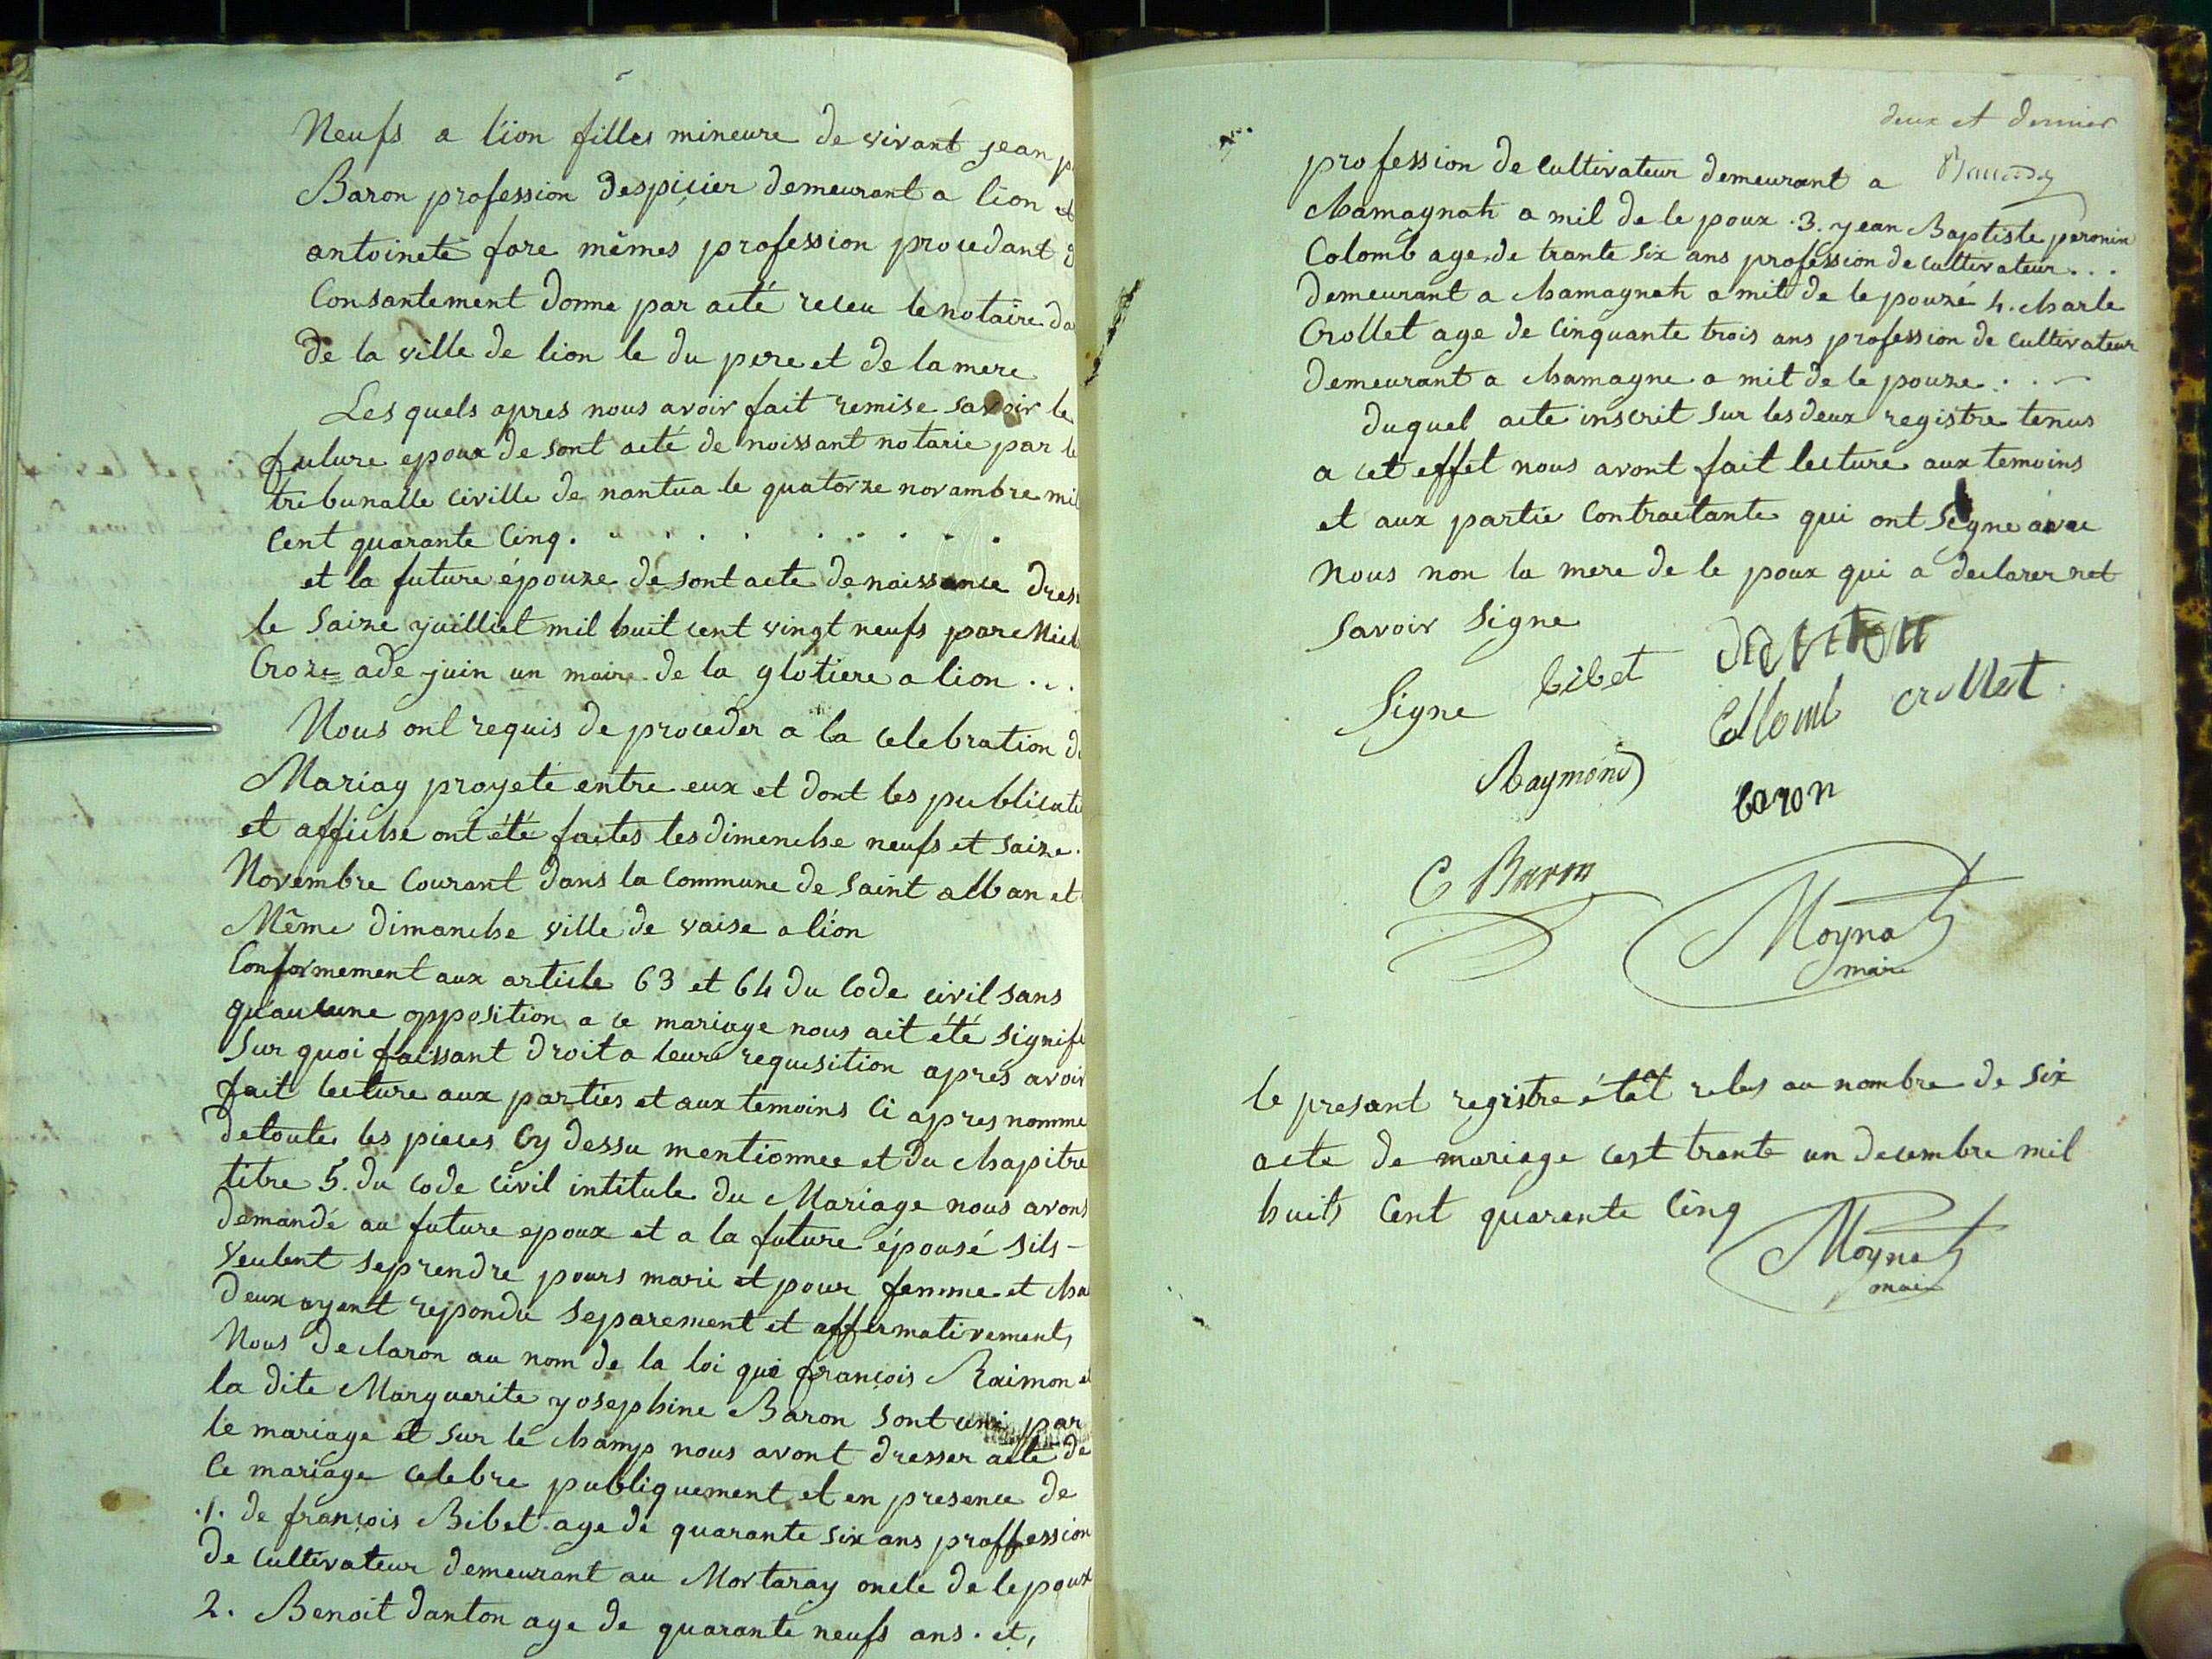 Neufs a lion filles mineure de vivant jean p
Baron profession despicier demeurant a lion et
antoinete fore mêmes profession procedant d
Consantement donne par acté receu le notaire da
de la ville de lion le du pere et de la mere
Les quels apres nous avoir fait remise savoir le
future epoux de sont acté de noissant notarie par le
tribunalle civille de nantua le quatorze novambre mil
Cent quarante Cinq . . . . . . . . . .
et la future épouze de sont acte de naissance dres
le Saize juilliet mil huit cent vingt neufs par Mich
Croze ade juin un maire de la glotiere a lion ...
Nous ont requis de proceder a la celebration de
Mariag proyeté entre eux et dont les publicati
et affiche ont été faites les dimenche neufs et Saize.
Novembre Courant dans la Commune de Saint alban et
Même dimanche ville de vaise a lion
Conformement aux article 63 et 64 du Code civil sans
qu'aucune opposition a ce mariage nous ait été signifi
Sur quoi faissant droit a leure requisition aprés avoir
fait lecture aux parties et aux temoins Ci apres nomme
de toute les pieces Cy dessu mentionnee et du chapitre
titre 5. du Code Civil intitule du Mariage nous avons
demandé au future epoux et a la future épousé sils -
veulent se prendre pours mari et pour femme et cha
deux ayent repondu separement et affermativement,
Nous declaron au nom de la loi que françois Raimon et
la dite Marguerite yosephine Baron sont uni par
le mariage et sur le champ nous avont dresser acte de
Ce mariage celebre publiquement et en presence de
.1. de françois Bibet age de quarante six ans proffession
de Cultivateur demeurant au Mortaray oncle de lepoux
2. Benoit danton age de quarante neufs ans . et,
deux et dernier
profession de Cultivateur demeurant a
chamagnah a mil de le poux .3. yean Baptiste peronin
Colomb age de trante Six ans profession de Cultivateur...
demeurant a chamagnah a mit de le pouzé 4. charle
Crollet age de Cinquante trois ans profession de Cultivateur
demeurant a chamagne a mit de le pouze . . -
duquel acte inscrit sur les deux registre tenus
a cet effet nous avont fait lecture aux temoins
et aux partie Contractante qui ont signe avec
Nous non la mere de le poux qui a declarer net
savoir signe
Signe bibet danton
Collomb crollet
Raymond
baron
C Baron
Moynat
maire
le presant registre étét reles au nombre de six
acte de mariage cest trante un decembre mil
huits Cent quarente Cinq
Moynat
maire